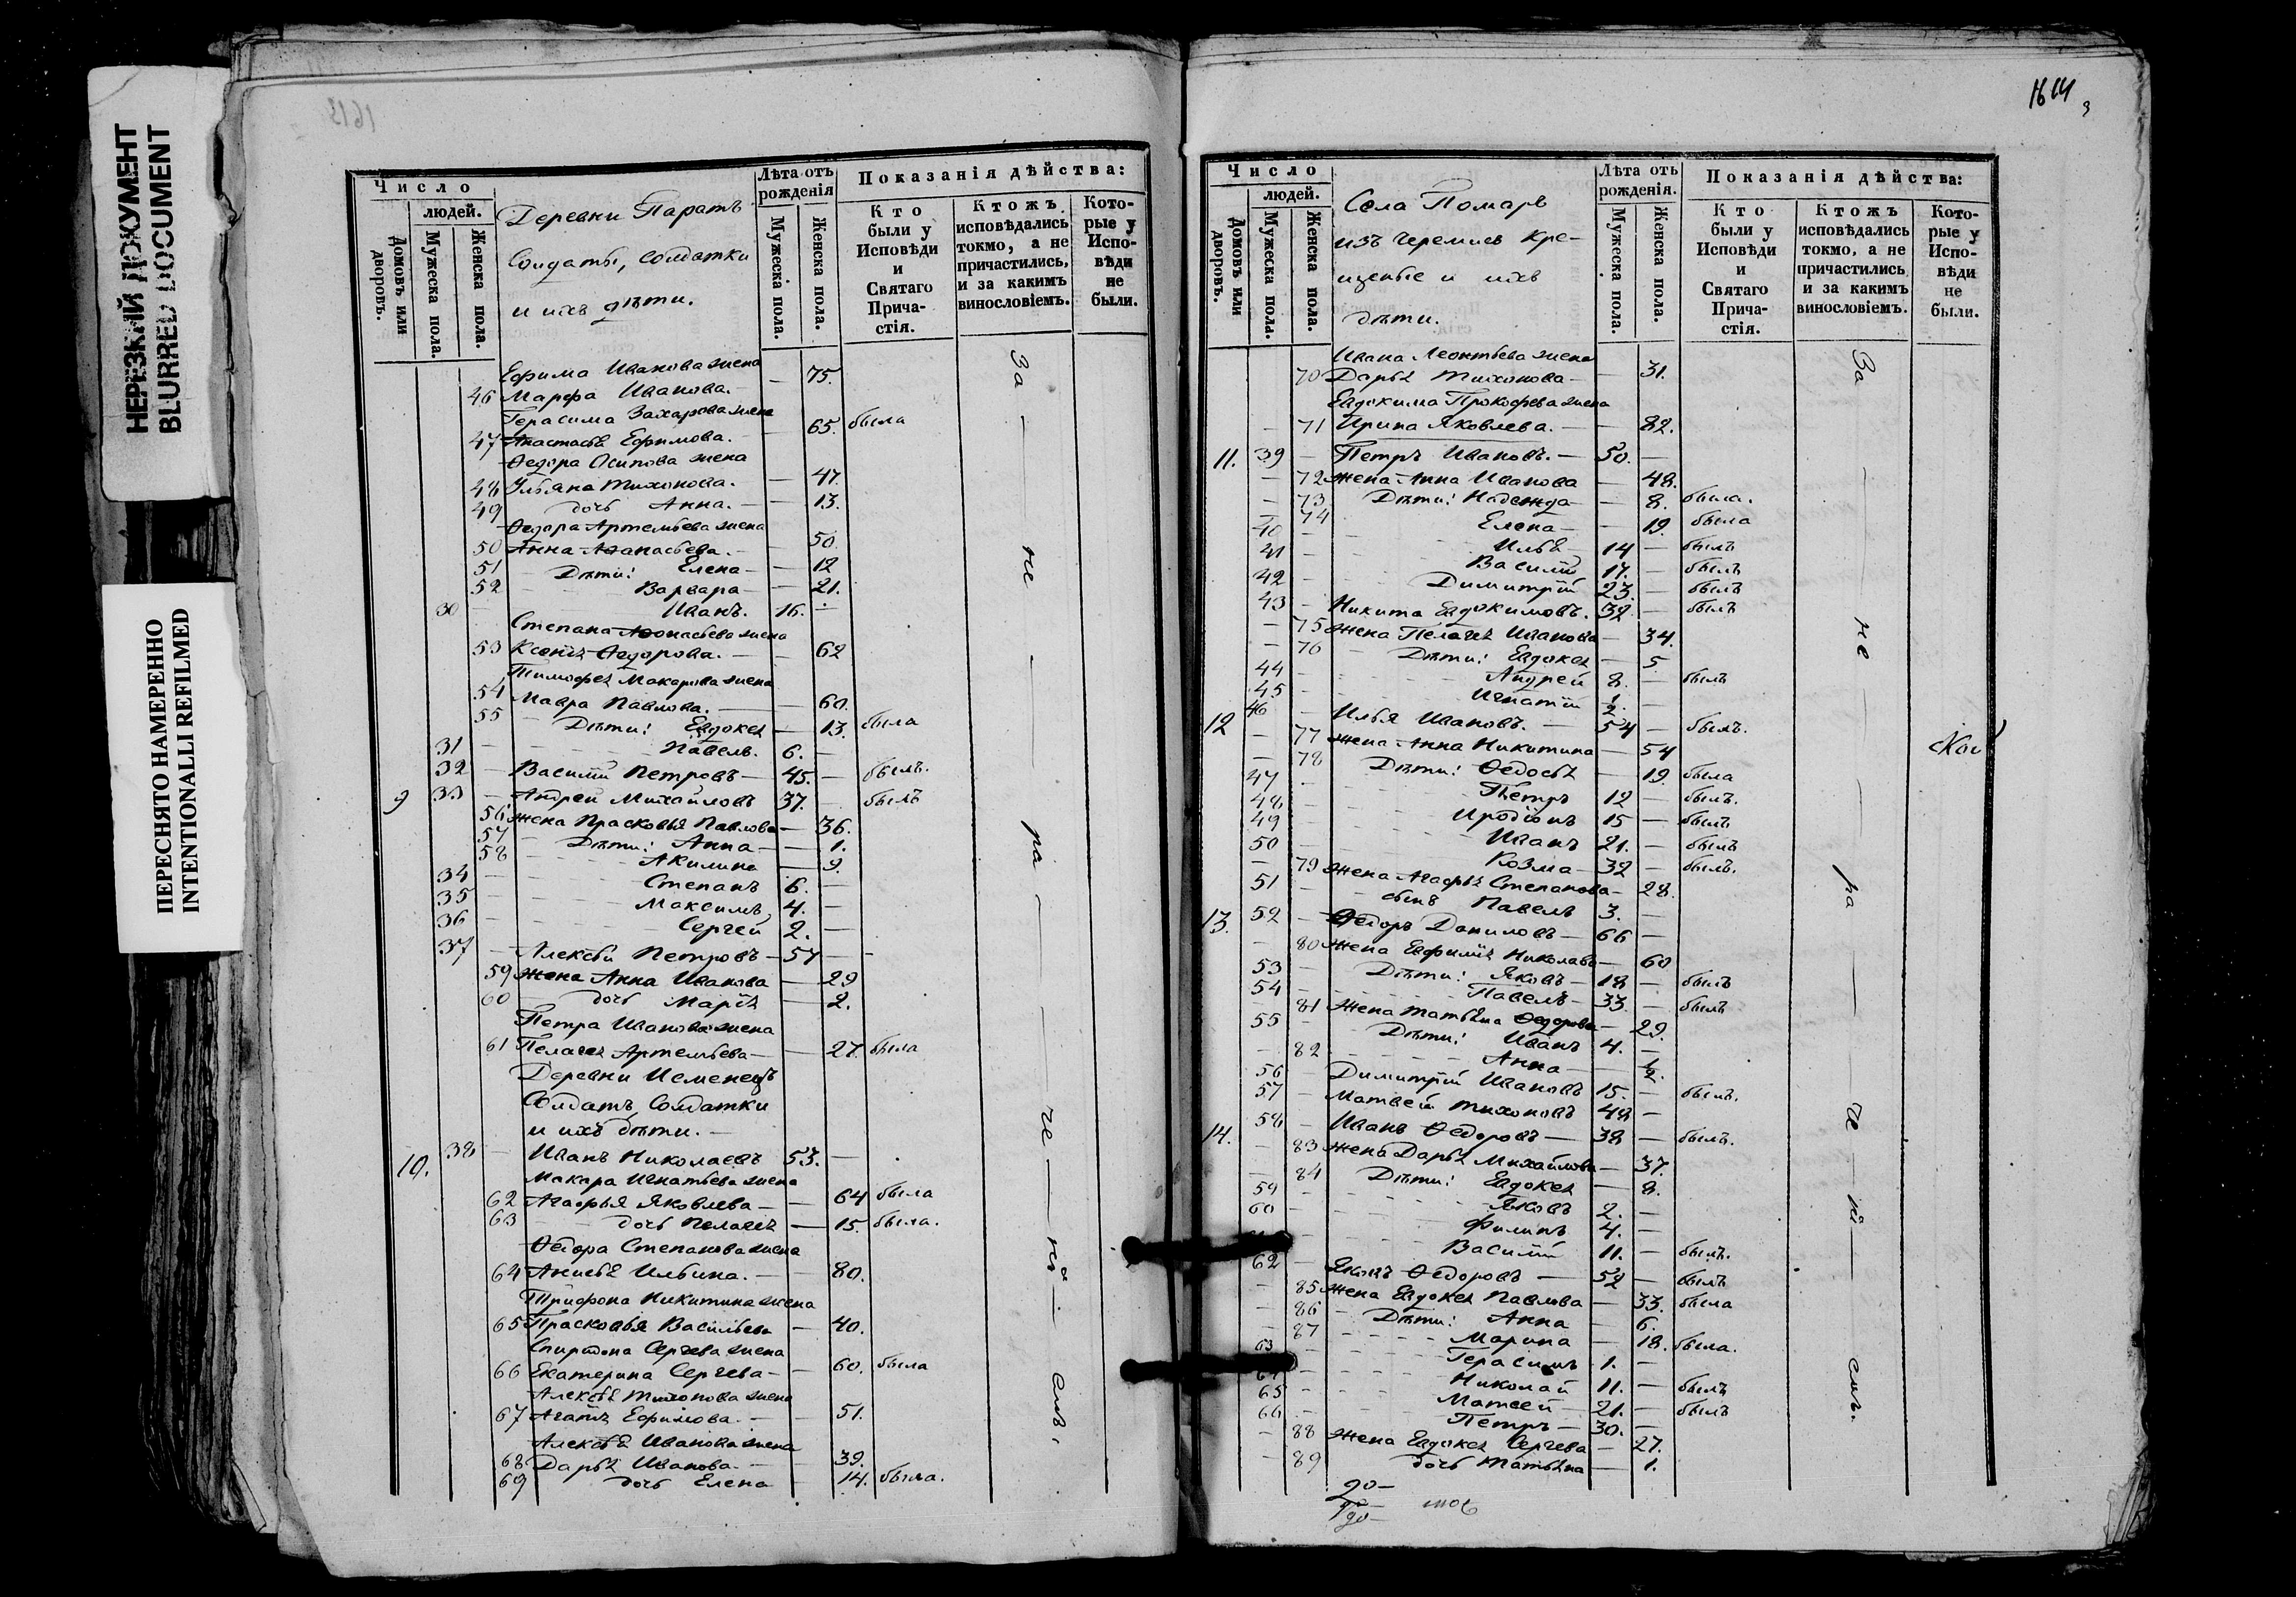 НЕРЕЗКИЙ ДОКУМЕНТ
BLURRED DOCUMENT
ПЕРЕСНЯТО НАМЕРЕННО
INTENTIONALLI REFILMED
1613
Число
людей.
Домовъ или дворовъ.
Мужеска пола.
Женска пола.
Деревни Паратъ
Солдаты, солдатки
и ихъ дѣти.
Лѣта отъ рожденія
Мужеска пола.
Женска пола.
Показанія дѣйства:
Кто были у Исповѣди и Святаго Причастія.
Ктожъ исповѣдались токмо, а не причастились, и за какимъ винословіемъ.
Которые у Исповѣди не были.
За — не — ра — че — ні — емъ.
Ефима Иванова жена
46 Марфа Иванова. — 75.
Герасима Захарова жена
47 Анастасія Ефимова. — 65. была
Ѳедора Осипова жена
48 Ульяна Тихонова. — 47.
49 дочь Анна. — 13.
Ѳедора Артемьева жена
50 Анна Аѳанасьева. — 50.
51 Дѣти: Елена — 12
52 Варвара — 21.
30 Иванъ. 16. —
Степана Аѳонасьева жена
53 Ксенія Ѳедорова. — 62
Тимофея Макарова жена
54 Мавра Павлова. — 60.
55 Дѣти: Евдокея — 13. была
31 Павелъ. 6. —
32 Василій Петровъ — 45. — былъ.
9 33 Андрей Михайловъ 37. — былъ
56 жена Прасковья Павлова — 36.
57 Дѣти: Анна — 1.
58 Акилина — 9.
34 Степанъ 6. —
35 Максимъ 4. —
36 Сергей 2. —
37 Алексѣй Петровъ — 57 —
59 жена Анна Иванова — 29
60 дочь Марія — 2.
Петра Иванова жена
61 Пелагея Артемьева — 27. была
Деревни Исменецъ
Солдатъ, Солдатки
и ихъ дѣти. —
10. 38 Иванъ Николаевъ 53. —
Макара Игнатьева жена
62 Агафья Яковлева — 64 была
63 дочь Пелагея — 15. была.
Ѳедора Степанова жена
64 Анисья Ильина. — 80.
Трифона Никитина жена
65 Прасковья Васильева — 40.
Спиридона Сергева жена
66 Екатерина Сергева — 60. была
Алексѣя Тихонова жена
67 Агафія Ефимова. — 51.
Алексѣя Иванова жена
68 Дарья Иванова. — 39.
69 дочь Елена — 14. была.
1614
Число
людей.
Домовъ или дворовъ.
Мужеска пола.
Женска пола.
Села Помаръ
изъ черемисъ кре-
щеные и ихъ
дѣти.
Лѣта отъ рожденія.
Мужеска пола.
Женска пола.
Показанія дѣйства:
Кто были у Исповѣди и Святаго Причастія.
Ктожъ исповѣдались токмо, а не причастились и за какимъ винословіемъ.
Которые у Исповѣди не были.
За — не — ра — че — ні — емъ.
Ивана Леонтьева жена
70 Дарья Тихонова — 31.
Евдокима Прокофьева жена
71 Ирина Яковлева. — 82.
11. 39 Петръ Ивановъ. — 50. —
72 жена Анна Иванова — 48.
73 Дѣти: Надежда — 8. была.
74 Елена — 19. была
40 Илья 14 — былъ
41 Василій 17. — былъ
42 Димитрій 23. — былъ
43 Никита Евдокимовъ. 32. — былъ
75 жена Пелагея Иванова — 34.
76 Дѣти: Евдокея — 5
44 Андрей 8. — былъ
45 Игнатій 1/2. —
12 46 Илья Ивановъ. — 54 — былъ.
77 жена Анна Никитина — 54
78 Дѣти: Ѳедосья — 19. была
47 Петръ 12 — былъ.
48 Иродіонъ 15 — былъ
49 Иванъ 21. — былъ
50 Козма — 32 — былъ.
79 жена Агафья Степанова — 28.
51 сынъ Павелъ 3. —
13. 52 Ѳедоръ Даниловъ — 66 —
80 жена Евфимія Николаева — 60
53 Дѣти: Яковъ — 18 — былъ
54 Павелъ — 33. — былъ
81 жена Татьяна Ѳедорова — 29.
55 Дѣти: Иванъ 4. —
82 Анна — 1/2.
56 Димитрій Ивановъ 15. — былъ.
57 Матвей Тихоновъ 48 —
14. 58 Иванъ Ѳедоровъ — 38 — былъ.
83 жена Дарья Михайлова — 37.
84 Дѣти: Евдокея — 8.
59 Яковъ 2. —
60 Филипъ 4. —
Василій 11. — былъ.
62 Яковъ Ѳедоровъ — 52 — былъ
85 жена Евдокея Павлова — 33. была
86 Дѣти: Анна — 6.
87 Марина — 18. была.
63 Герасимъ 1. —
64 Николай 11. — былъ
65 Матвей — 21. — былъ
66 Петръ — 30. —
88 жена Евдокея Сергева — 27.
89 дочь Татьяна — 1.